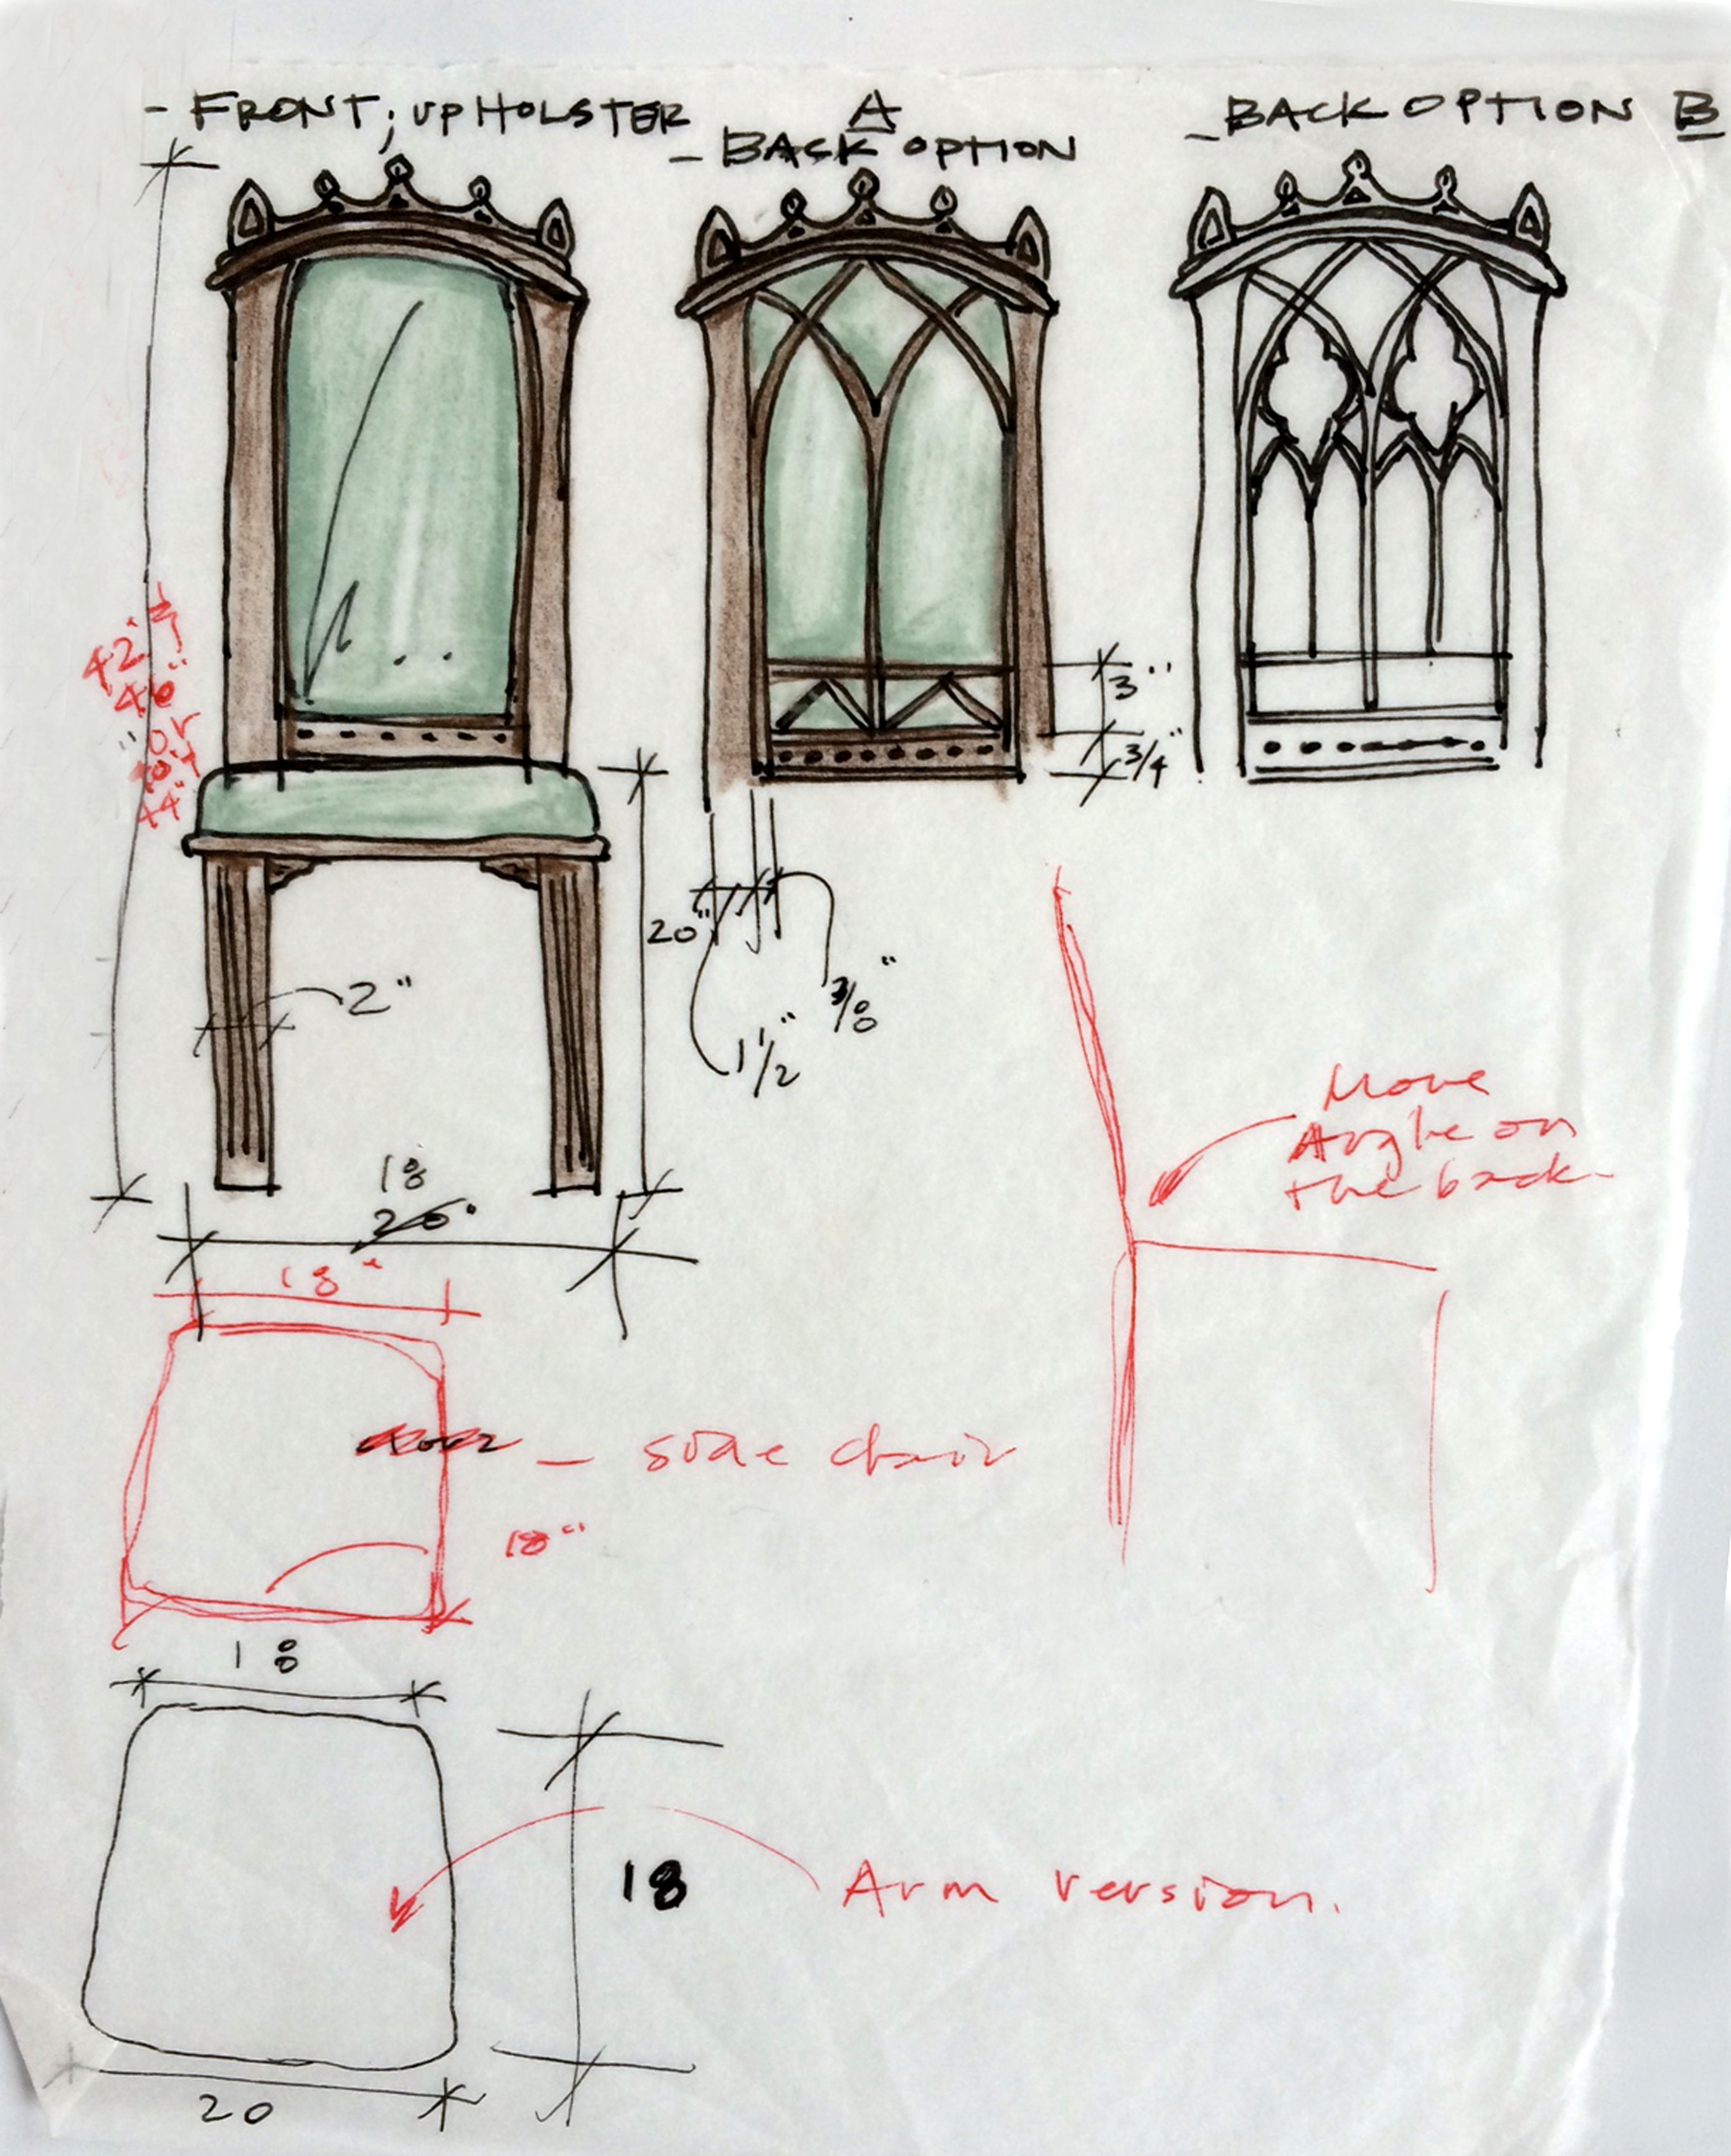 - FRONT; UPHOLSTER
A
- BACK OPTION
- BACK OPTION B
42"
46"
or
44"
3"
3/4"
20"
2"
3/8"
1 1/2"
18
20"
18"
More
Angle on
the back
- side chair
18"
18
18
Arm version.
20